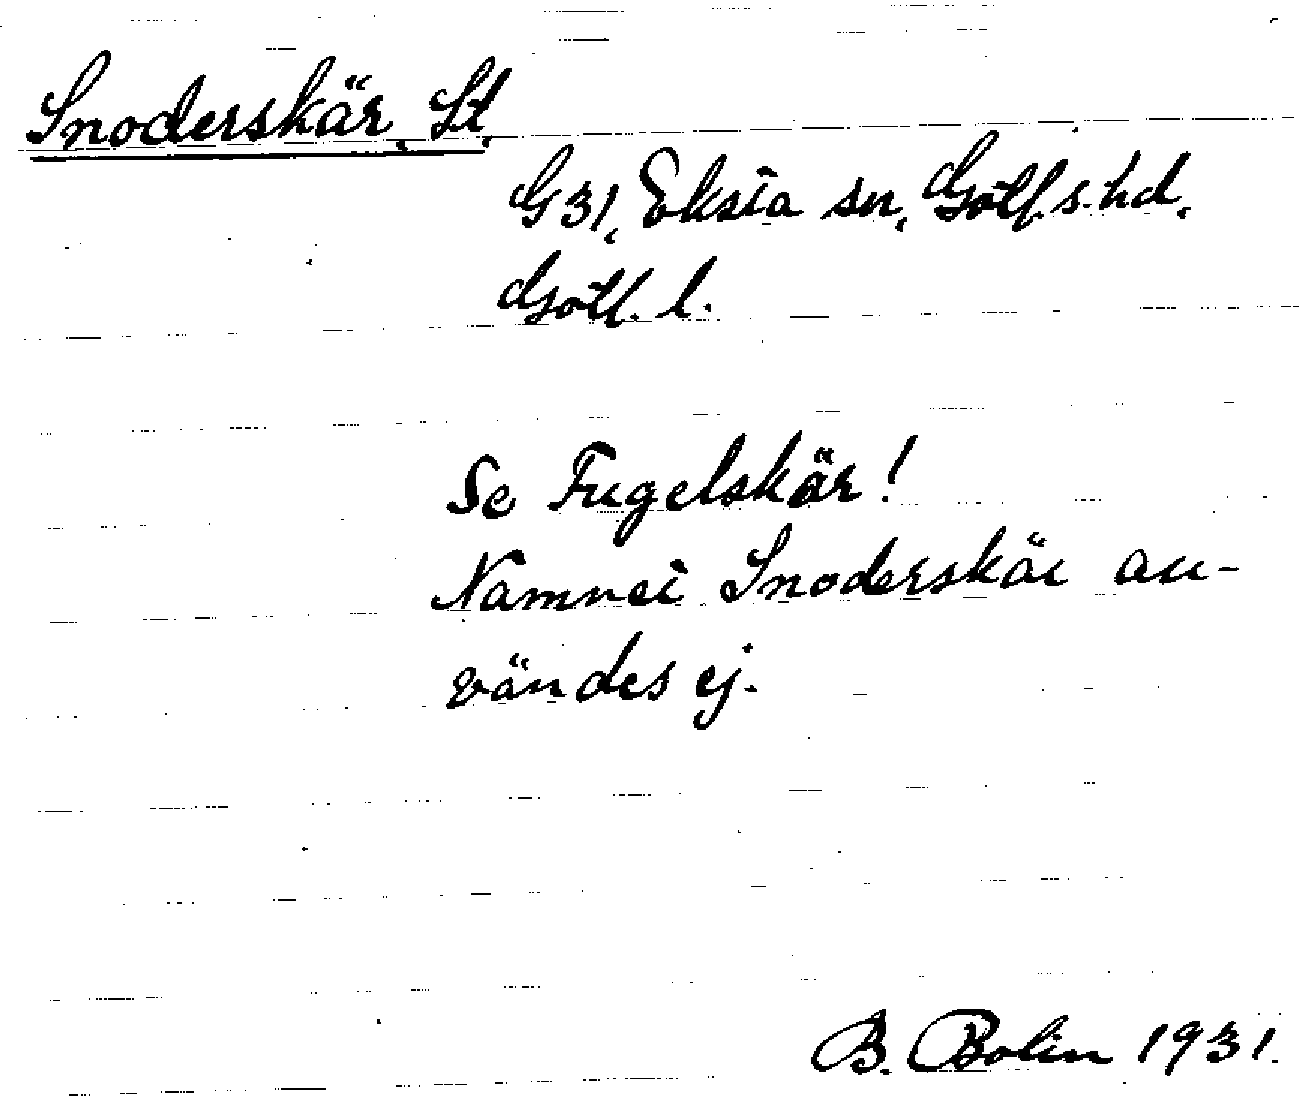 Snoderskär, St.
G31, Eksta sn, Gotl. s. hd,
Gotl. l.
Se Fugelskär!
Namnet Snoderskär an-
vändes ej.
B. Bolin 1931.